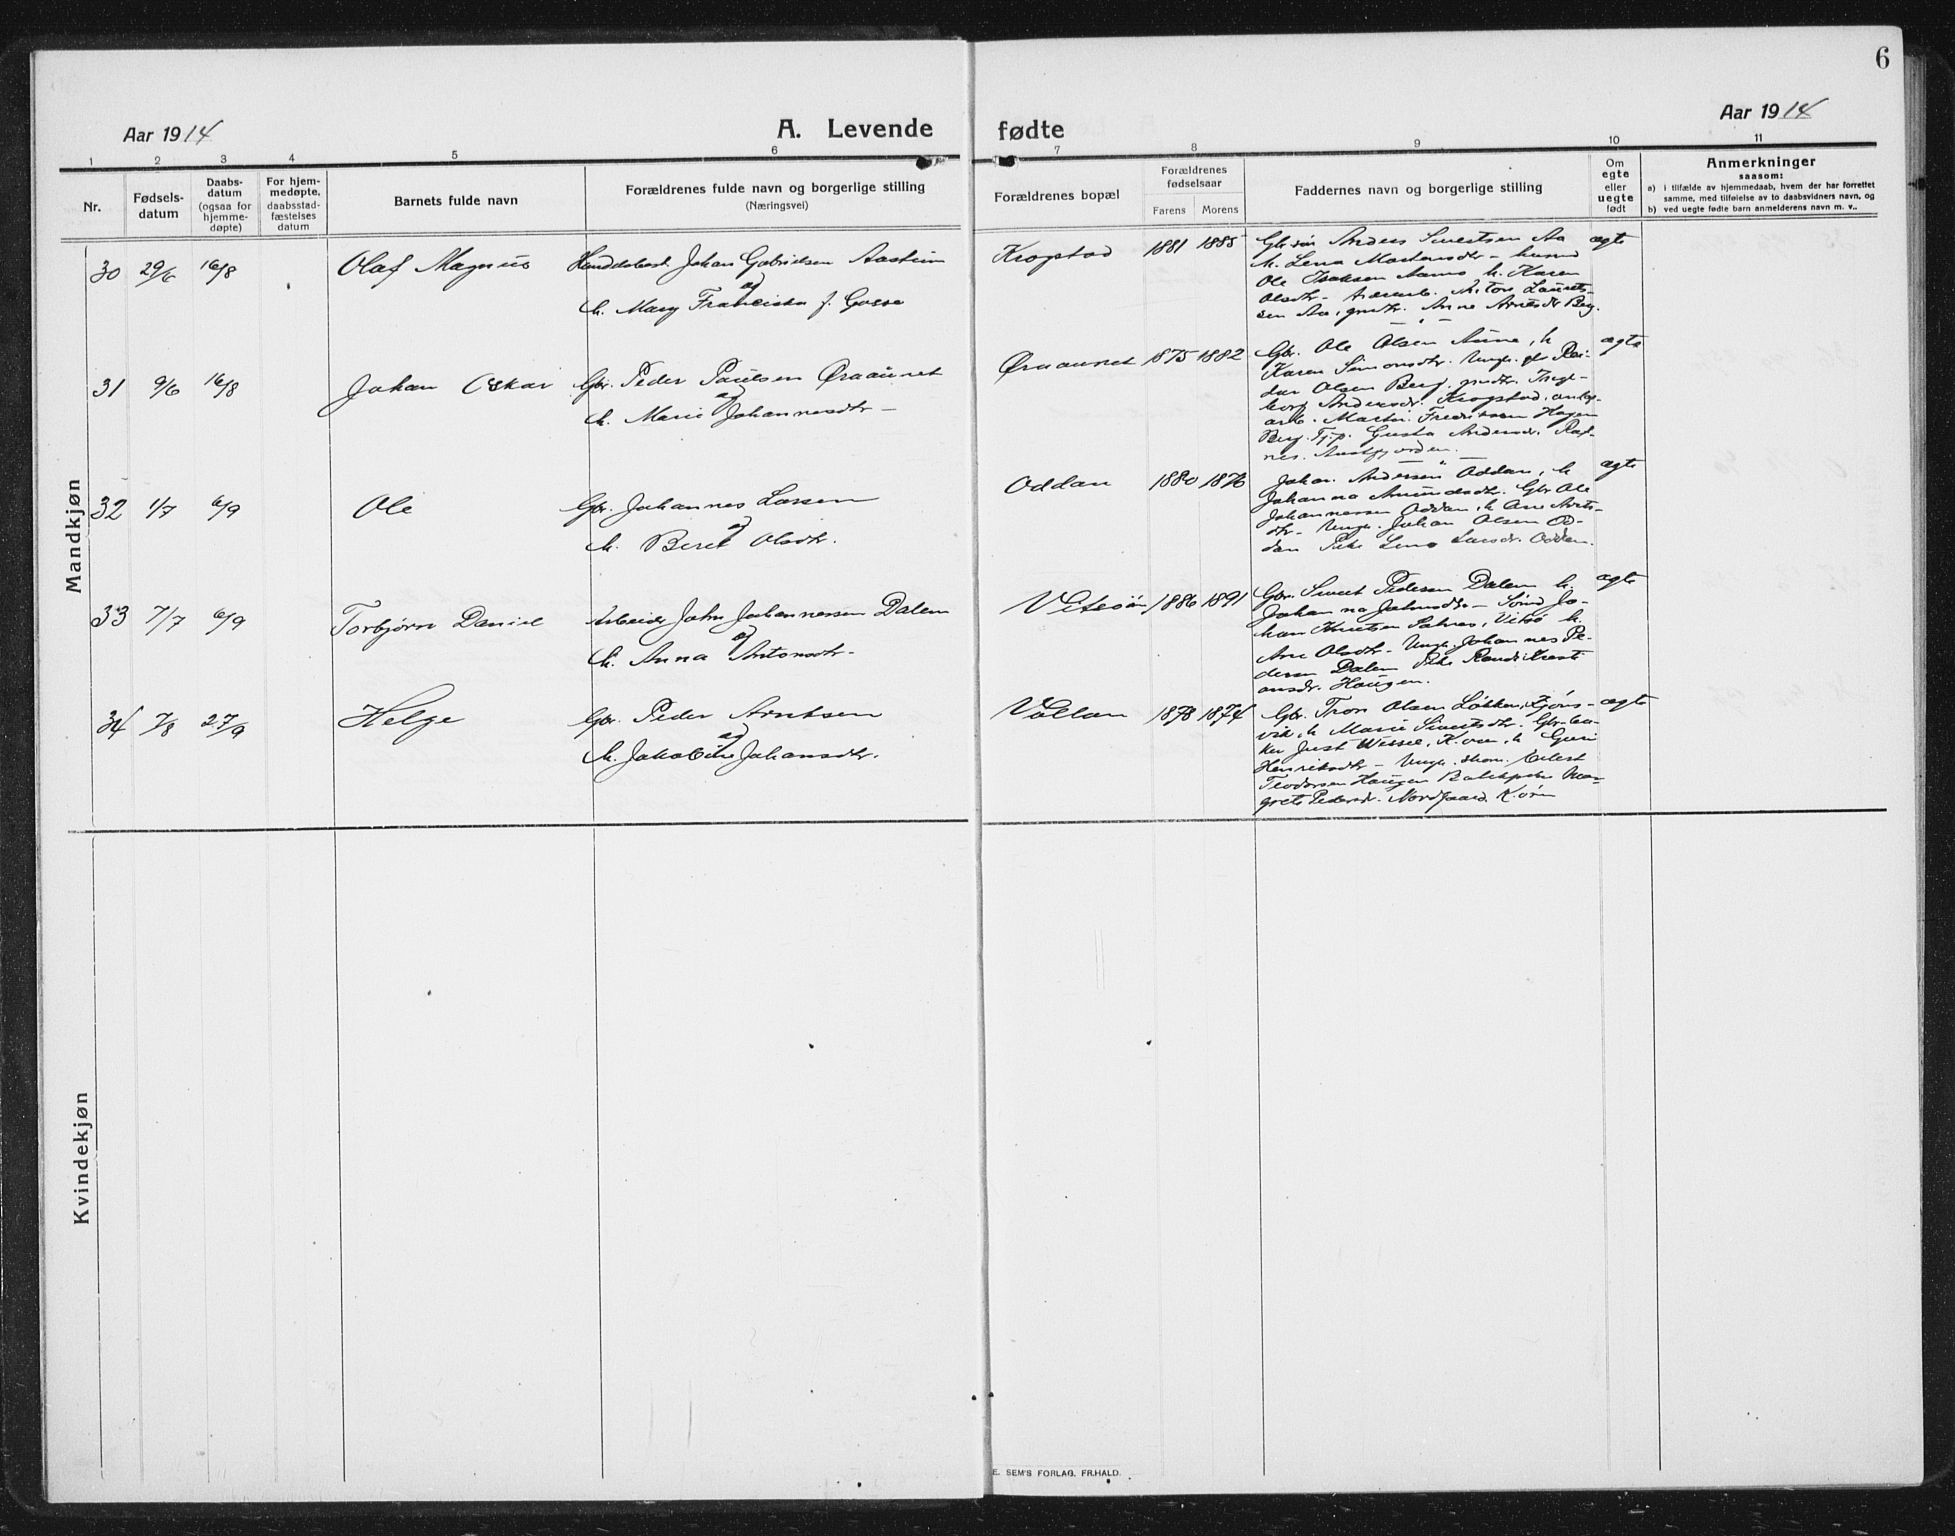 6
Aar 1914
A. Levende fødte
Aar 1914
1 2 3 4 5 6 7 8 9 10 11
Nr.
Fødsels-
datum
Daabs-
datum
(ogsaa for
hjemme-
døpte)
For hjem-
medøpte,
daabsstad-
fæstelses
datum
Barnets fulde navn
Forældrenes fulde navn og borgerlige stilling
(Næringsvei)
Forældrenes bopæl
Forældrenes
fødselsaar
Farens Morens
Faddernes navn og borgerlige stilling
Om
egte
eller
uegte
født
Anmerkninger
saasom:
a) i tilfælde av hjemmedaab, hvem der har forrettet
samme, med tilføielse av to daabsvidners navn, og
b) ved uegte fødte barn anmelderens navn m. v..
Mandkjøn
30 29/6 16/8 Olaf Magnus
Johan Gabrielsen Aastrøm
og
h. Mary Franciska f. Gosse
Krogstad 1881 1885
Anders Sivertsen Aa
h. Lena
Ole Isaksen Aamo h. Karen
Olsdtr.
sen Aa, gmdtr. Anne Arntsdtr Berg.
egte
31 9/6 16/8 Johan Oskar
Gbr. Peder Paulsen Øraaunet
og
h. Marie Johannesdtr
Øraaunet 1875 1882
Gbr. Ole Olsen Aune, h
Karen Simonsdtr. Ungk.
dar Olsen Berg. gmdtr. Inge-
borg Andersdr. Krogstad,
arb. Martin Fredriksen Hagen
Berg. Tj.p. Gusta Andersdr. Ras-
nes. Austfjorden.
egte
32 1/7 6/9 Ole
Gbr. Johannes Larsen
og
h. Beret Olsdtr.
Oddan 1880 1876
Johan Andersen Oddan, h
Johanna Amundsdtr. Gbr Ole
Johannessen Oddan, h. Ane Arnts-
dtr - Ungk. Johan Olsen Od-
dan Pike Lena Larsdr. Oddan.
egte
33 7/7 6/9 Torbjørn Daniel
Arbeider John Johannessen Dalem
og
h. Anna Antonsdtr-
Vitsøen 1886 1891
Gbr. Sivert Pedersen Dalem h.
Johanna Johnsdtr - Smed Jo-
han Knutsen Vitsø h.
Ane Olsdtr - Ungk. Johannes Pe-
dersen Dalem Pike Randi Kristi-
ansdr. Haugen.
egte
34 7/8 27/9 Helge
Gbr. Peder Arntsen
og
h. Jakobine Johansdtr.
Vollan 1878 1874
Gbr. Tron Olsen Løkken, Kjøns-
vik, h Marie Sivertsdtr. Gbr
Just Wessel, h Guri
Henriksdtr - Ungk.
Teodorsen Haugen Mar-
grete Pedersdr. Nordgaard. Kjøren
egte
Kvindekjøn
E. SEM'S FORLAG, FR.HALD.